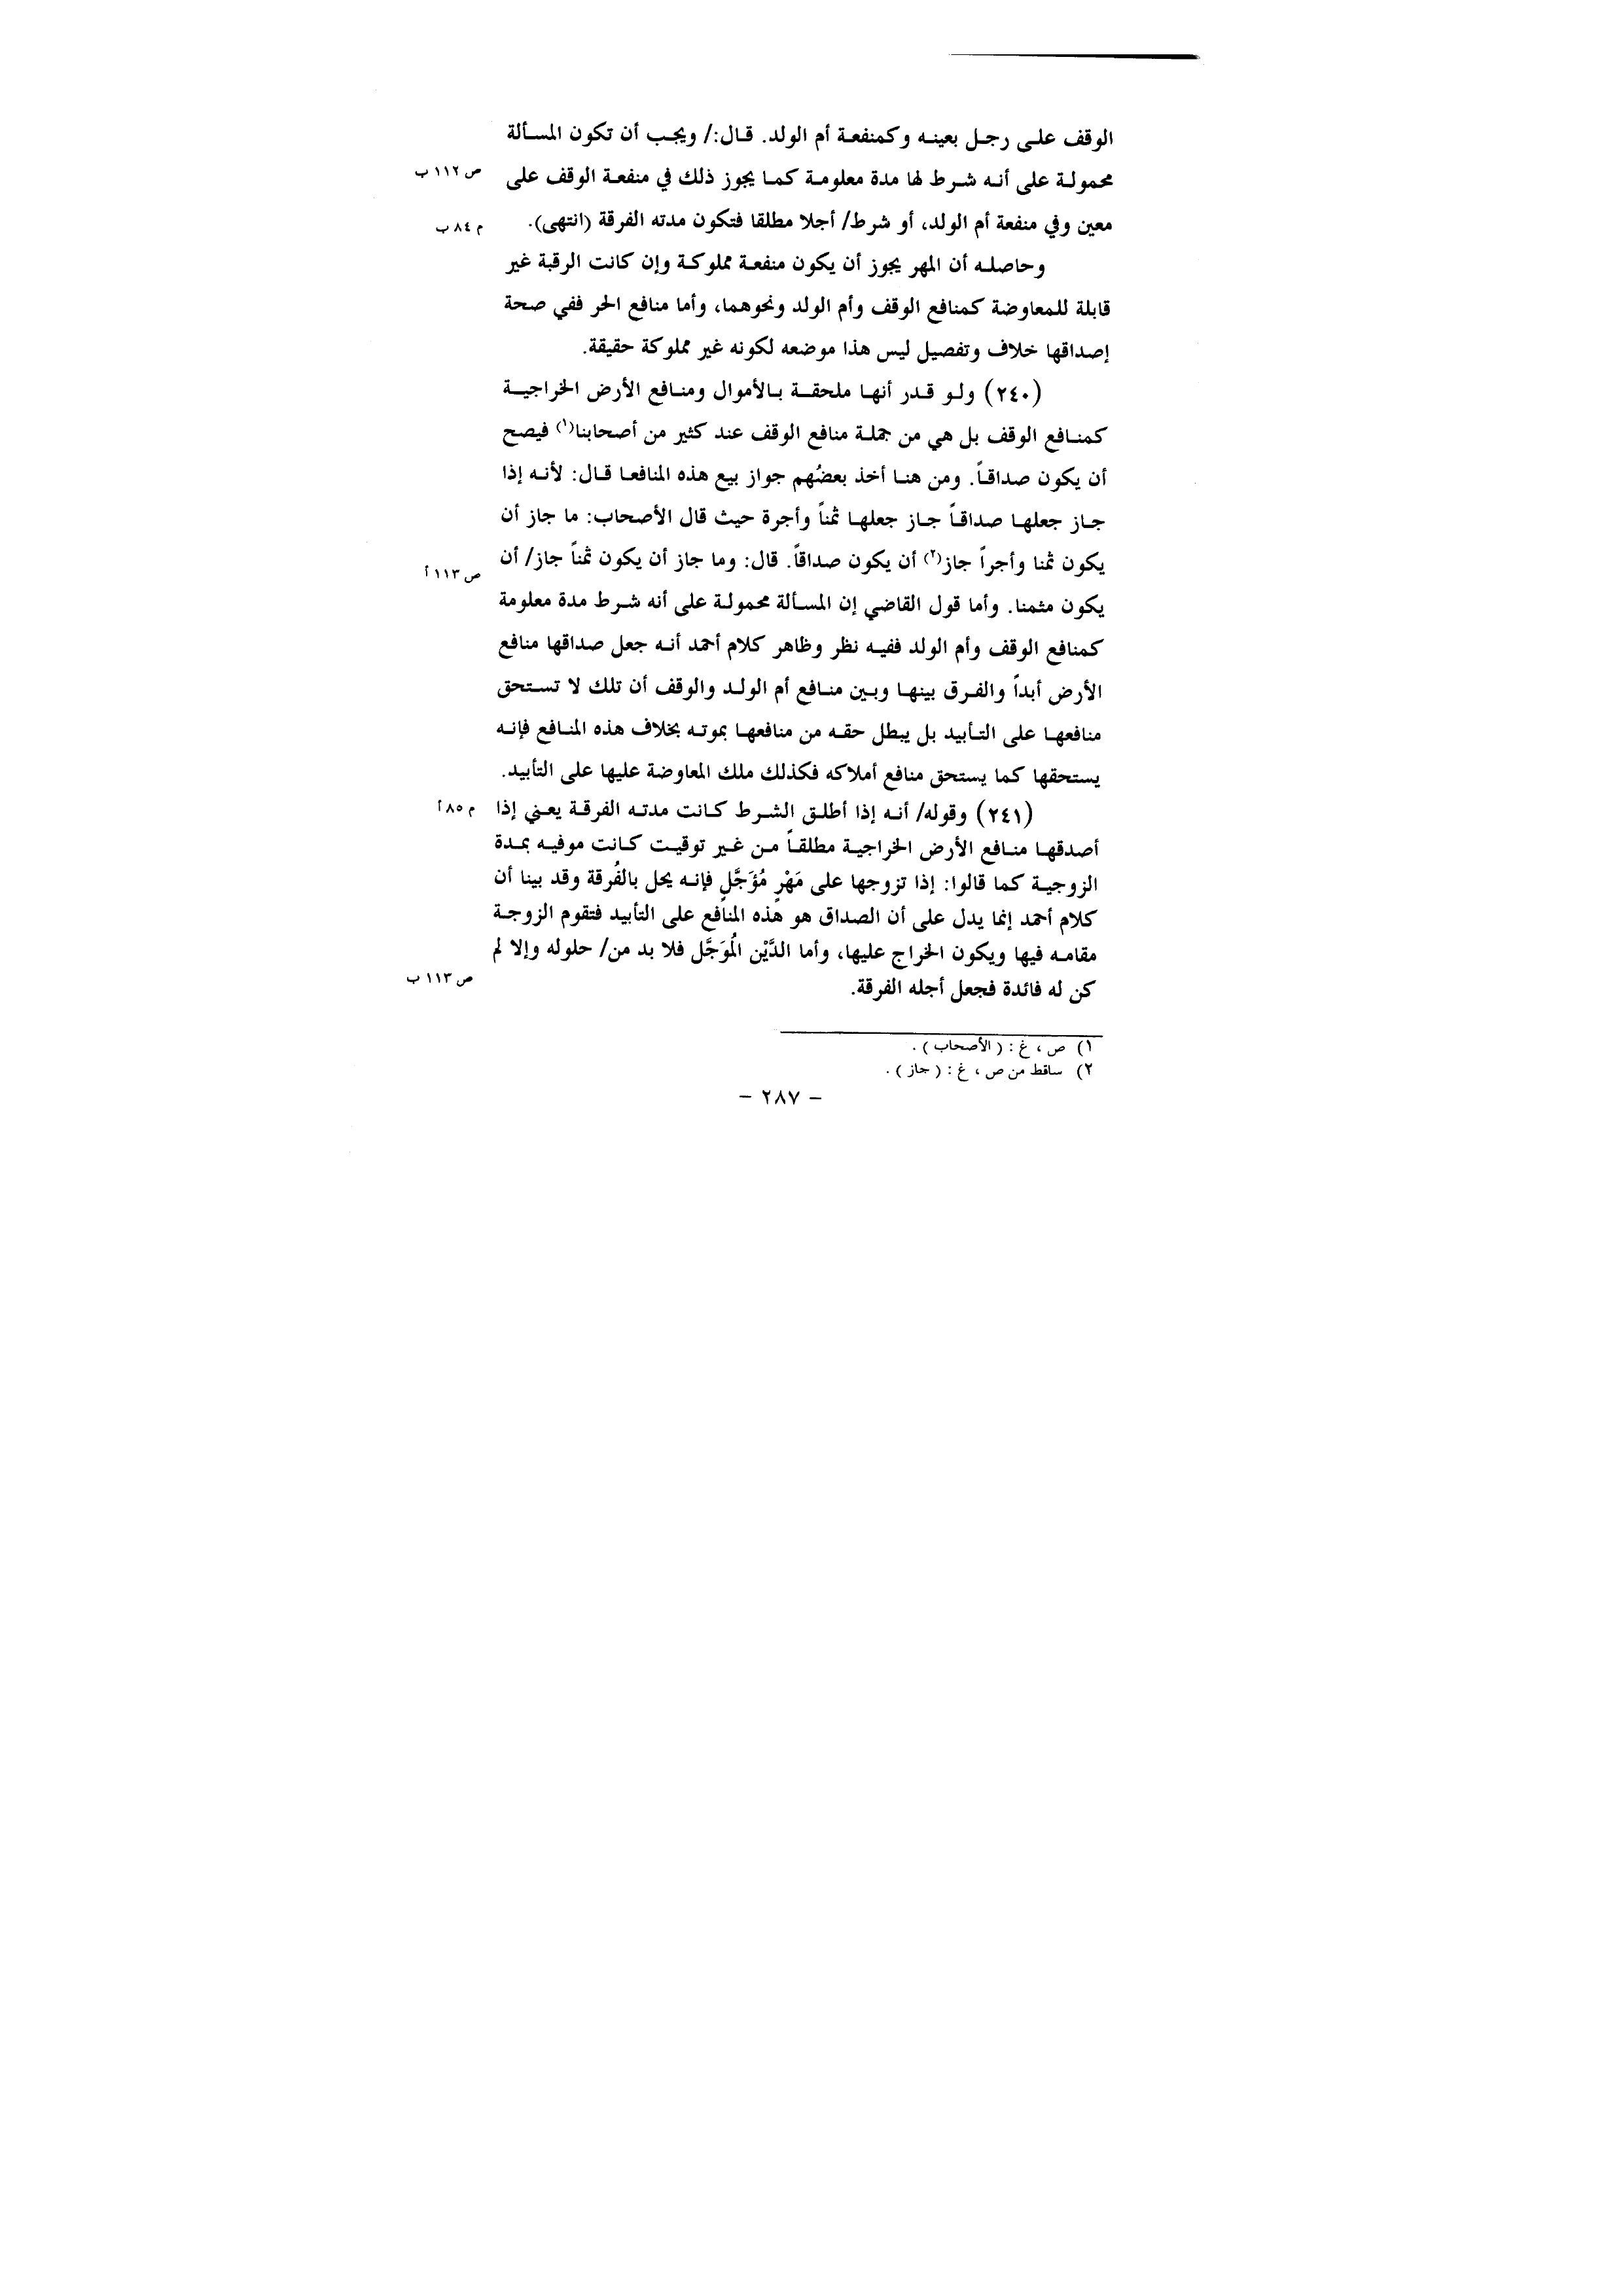 الوقف على رجل بعينه وكمنفعة أم الولد. قال:/ ويجب أن تكون المسألة
ص ١١٢ ب
محمولة على أنه شرط لها مدة معلومة كما يجوز ذلك في منفعة الوقف على
معين وفي منفعة أم الولد، أو شرط/ أجلا مطلقا فتكون مدته الفرقة (انتهى).
م ٨٤ ب
وحاصله أن المهر يجوز أن يكون منفعة مملوكة وإن كانت الرقبة غير
قابلة للمعاوضة كمنافع الوقف وأم الولد ونحوهما، وأما منافع الحر ففي صحة
إصداقها خلاف وتفصيل ليس هذا موضعه لكونه غير مملوكة حقيقة.
(٢٤٠) ولو قدر أنها ملحقة بالأموال ومنافع الأرض الخراجية
كمنافع الوقف بل هي من جملة منافع الوقف عند كثير من أصحابنا(١) فيصح
أن يكون صداقاً. ومن هنا أخذ بعضُهم جواز بيع هذه المنافعا قال: لأنه إذا
جاز جعلها صداقاً جاز جعلها ثمناً وأجرة حيث قال الأصحاب: ما جاز أن
يكون ثمنا وأجراً جاز(٢) أن يكون صداقاً. قال: وما جاز أن يكون ثمناً جاز/ أن
ص ١١٣ أ
يكون مثمنا. وأما قول القاضي إن المسألة محمولة على أنه شرط مدة معلومة
كمنافع الوقف وأم الولد ففيه نظر وظاهر كلام أحمد أنه جعل صداقها منافع
الأرض أبداً والفرق بينها وبين منافع أم الولد والوقف أن تلك لا تستحق
منافعها على التأبيد بل يبطل حقه من منافعها بموته بخلاف هذه المنافع فإنه
يستحقها كما يستحق منافع أملاكه فكذلك ملك المعاوضة عليها على التأبيد.
(٢٤١) وقوله/ أنه إذا أطلق الشرط كانت مدته الفرقة يعني إذا
م ٨٥ أ
أصدقها منافع الأرض الخراجية مطلقاً من غير توقيت كانت موفيه بمدة
الزوجية كما قالوا: إذا تزوجها على مَهْرٍ مُؤَجَّلٍ فإنه يحل بالفُرقة وقد بينا أن
كلام أحمد إنما يدل على أن الصداق هو هذه المنافع على التأبيد فتقوم الزوجة
مقامه فيها ويكون الخراج عليها، وأما الدَّيْن الْمُوَجَّل فلا بد من/ حلوله وإلا لم
ص ١١٣ ب
كن له فائدة فجعل أجله الفرقة.
١) ص ، غ : ( الأصحاب ) .
٢) ساقط من ص ، غ : ( جاز ) .
– ٢٨٧ –